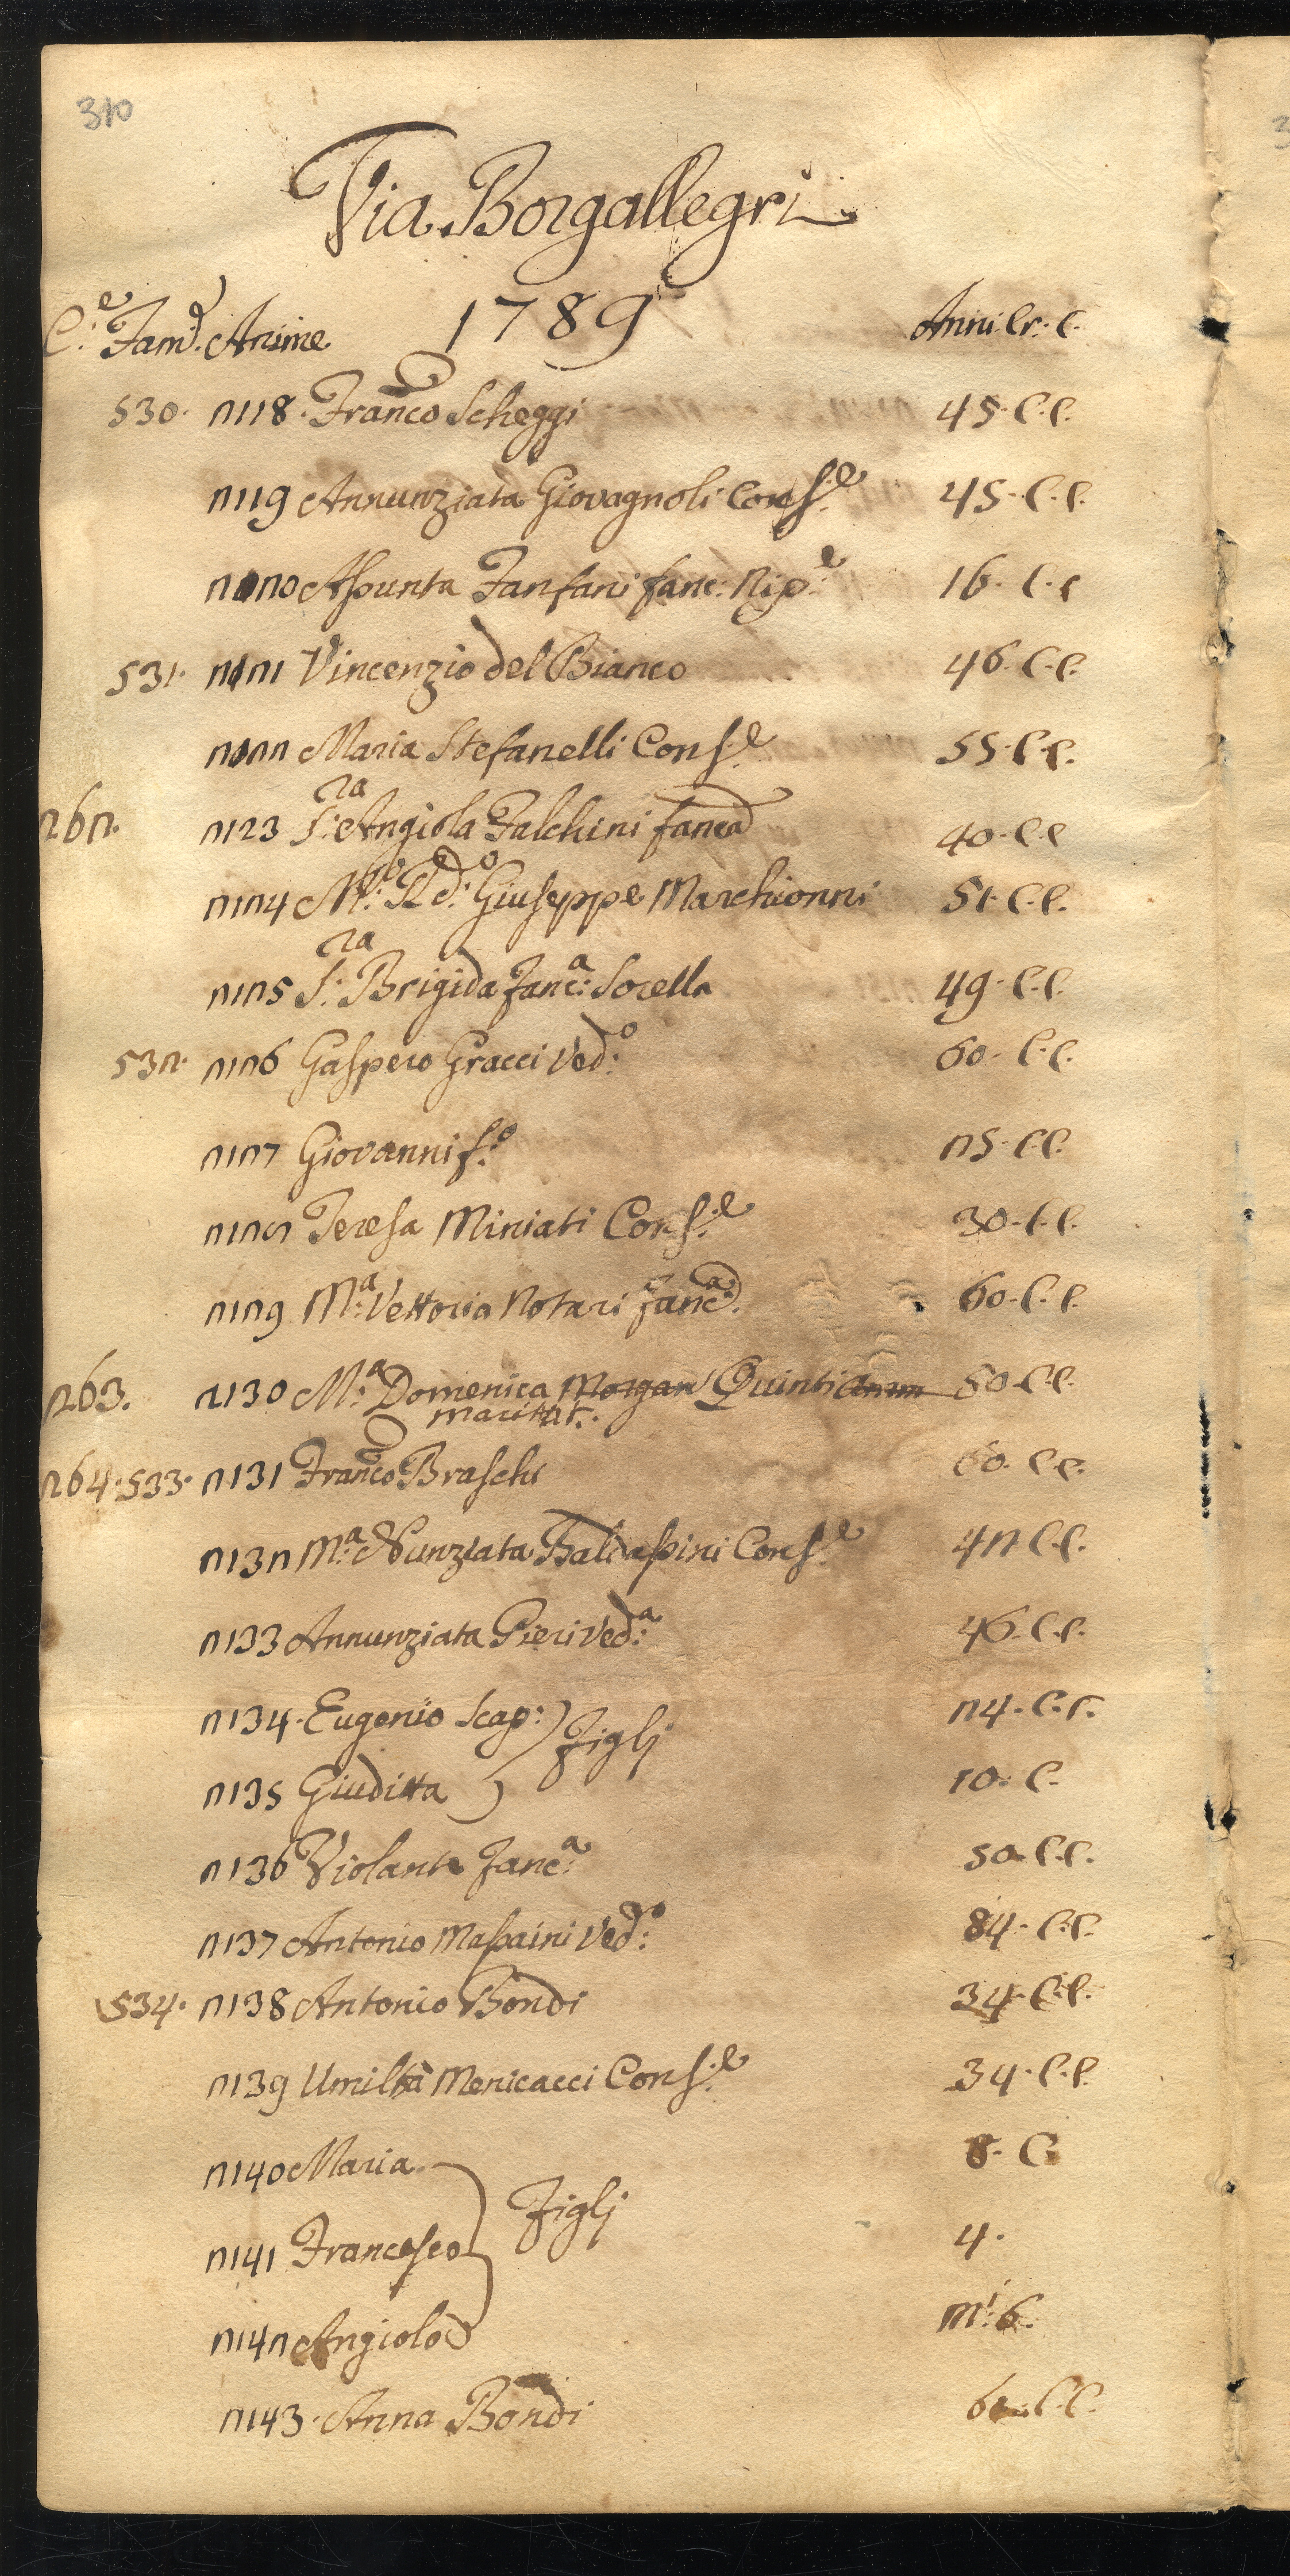 310
Via Borgallegri
1789
C.e Fam.e Anime Anni Cr. C.
530. 2118. Franco Scheggi 45. C. C.
2119 Annunziata Giovagnoli Cons.e 45. C. C.
2120 Assunta Fanfani fanc: Nip.e 16. C. C
531. 2121 Vincenzio del Bianco 46. C. C.
2122 Maria Stefanelli Cons.e 55. C. C.
262. 2123 S.ra Angiola Falchini fanca 40. C. C
2124 M.o R.do Giuseppe Marchionni 51. C. C.
2125 S.ra Brigida fanc.a Sorella 49. C. C.
532. 2126 Gaspero Gracci Ved.o 60. C. C.
2127 Giovanni f.o 25. C. C.
2128 Teresa Miniati Cons.e 30. C. C.
2129 M.a Vettoria Notari fanc.a 60. C. C.
263. 2130 M.a Domenica Morgan Quinti 50 C. C.
maritat.
264. 533. 2131 Franco Braschi 60. C. C.
2132 M.a Nunziata Baldassini Cons.e 42 C. C.
2133 Annunziata Pieri Ved.a 46. C. C.
2134. Eugenio Scap: 24. C. C.
Figlj
2135 Giuditta 10. C.
2136 Violante fanc.a 50. C. C.
2137 Antonio Massaini Ved.o 84. C. C.
534. 2138 Antonio Bondi 34. C. C.
2139 Umiltà Menicacci Cons.e 34. C. C.
2140 Maria 8. C
Figlj
2141 Francesco 4.
2142 Angiolo m.i 6.
2143. Anna Bondi C. C.